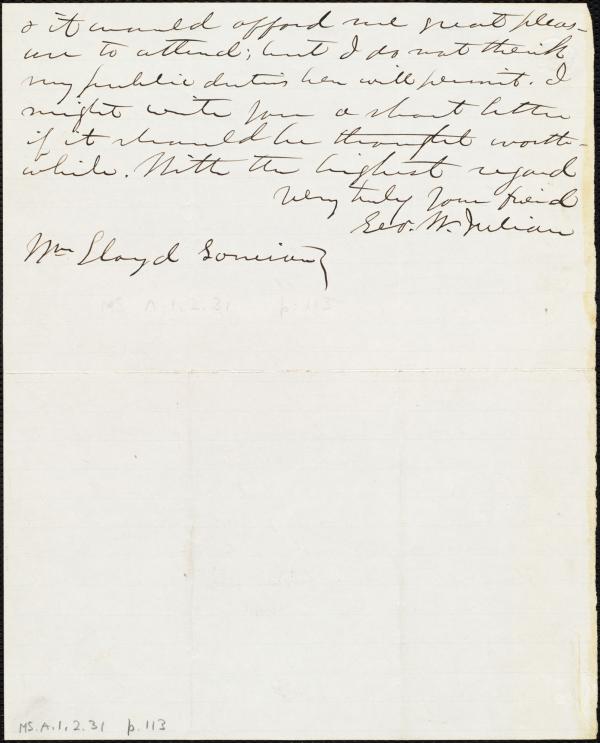 & it would afford me great pleas-
ure to attend; but I do not think
my public duties here will permit. I
might write you a short letter
if it should be thought worth-
while. With the highest regard
very truly your friend
Geo. W. Julian
Wm Lloyd Garrison
MS. A.1.2.31 p.113
MS. A.1.2.31 p.113